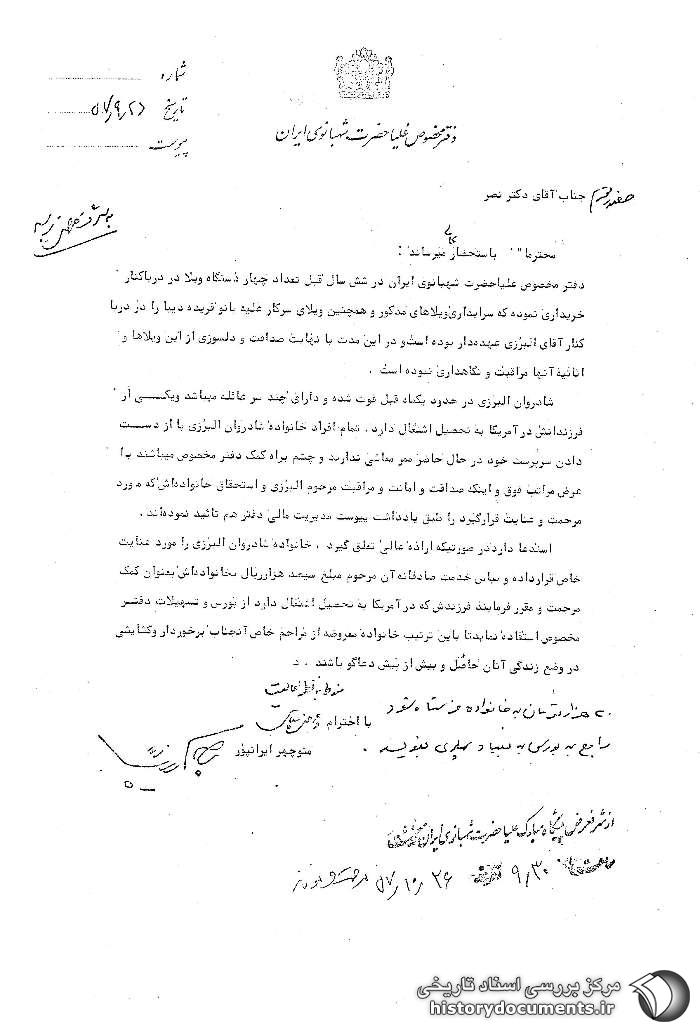 شماره
تاریخ ۵۷/۹/۲۶
پیوست
دفتر مخصوص علیاحضرت شهبانوی ایران
جناب آقای دکتر نصر
به شرفعرض برسد
محترما" باستحضار عالی میرساند :
دفتر مخصوص علیاحضرت شهبانوی ایران در شش سال قبل تعداد چهار دستگاه ویلا در دریاکنار
خریداری نموده که سرایداری ویلاهای مذکور و همچنین ویلای سرکار علیه بانو فریده دیبا را در دریا
کنار آقای البرزی عهده‌دار بوده است و در این مدت با نهایت صداقت و دلسوزی از این ویلاها و
اثاثیه آنها مراقبت و نگاهداری نموده است .
شادروان البرزی در حدود یکماه قبل فوت شده و دارای چند سر عائله میباشد ویکی از
فرزندانش در آمریکا به تحصیل اشتغال دارد . تمام افراد خانواده شادروان البرزی با از دست
دادن سرپرست خود در حال حاضر ممر معاشی ندارند و چشم براه کمک دفتر مخصوص میباشند با
عرض مراتب فوق و اینکه صداقت و امانت و مراقبت مرحوم البرزی و استحقاق خانواده‌اش که مورد
مرحمت و عنایت قرار گیرد را طبق یادداشت پیوست مدیریت مالی دفتر هم تائید نموده‌اند .
استدعا دارد در صورتیکه اراده عالی تعلق گیرد ، خانواده شادروان البرزی را مورد عنایت
خاص قرارداده و بپاس خدمت صادقانه آن مرحوم مبلغ سیصد هزار ریال بخانواده‌اش بعنوان کمک
مرحمت و مقرر فرمایند فرزندش که در آمریکا به تحصیل اشتغال دارد از بورس و تسهیلات دفتر
مخصوص استفاده نماید تا باین ترتیب خانواده معروضه از مراحم خاص آنجناب برخوردار وگشایشی
در وضع زندگی آنان حاصل و بیش از پیش دعاگو باشند . د
منوط به نظر عالیست
۲۰ هزار تومان به خانواده فرستاده شود
با احترام
راجع به بورس به بنیاد پهلوی بنویسید .
منوچهر ایرانپور
از شرفعرض پیشگاه مبارک علیاحضرت شهبانوی ایران گذشت
ساعت ۹/۳۰ ۵۷/۱۰/۲۶
مرکز بررسی اسناد تاریخی
historydocuments.ir